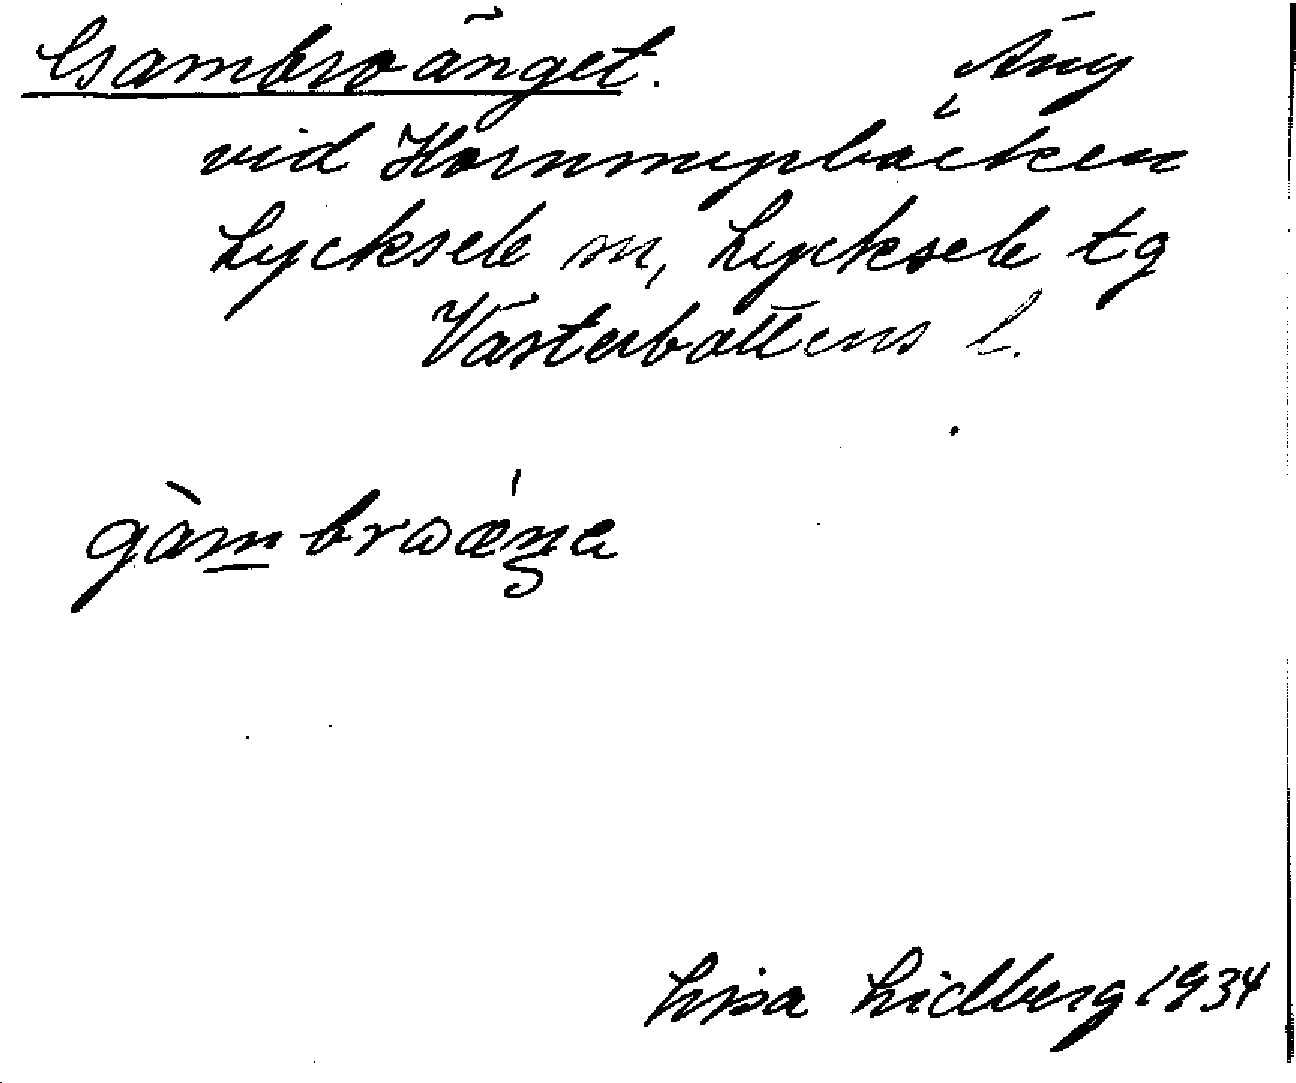 Gambroänget. Äng
vid Hornmyrbäcken
Lycksele sn, Lycksele tg
Västerbottens l.
gàmbrωæ̀ŋa
Lisa Lidberg 1934